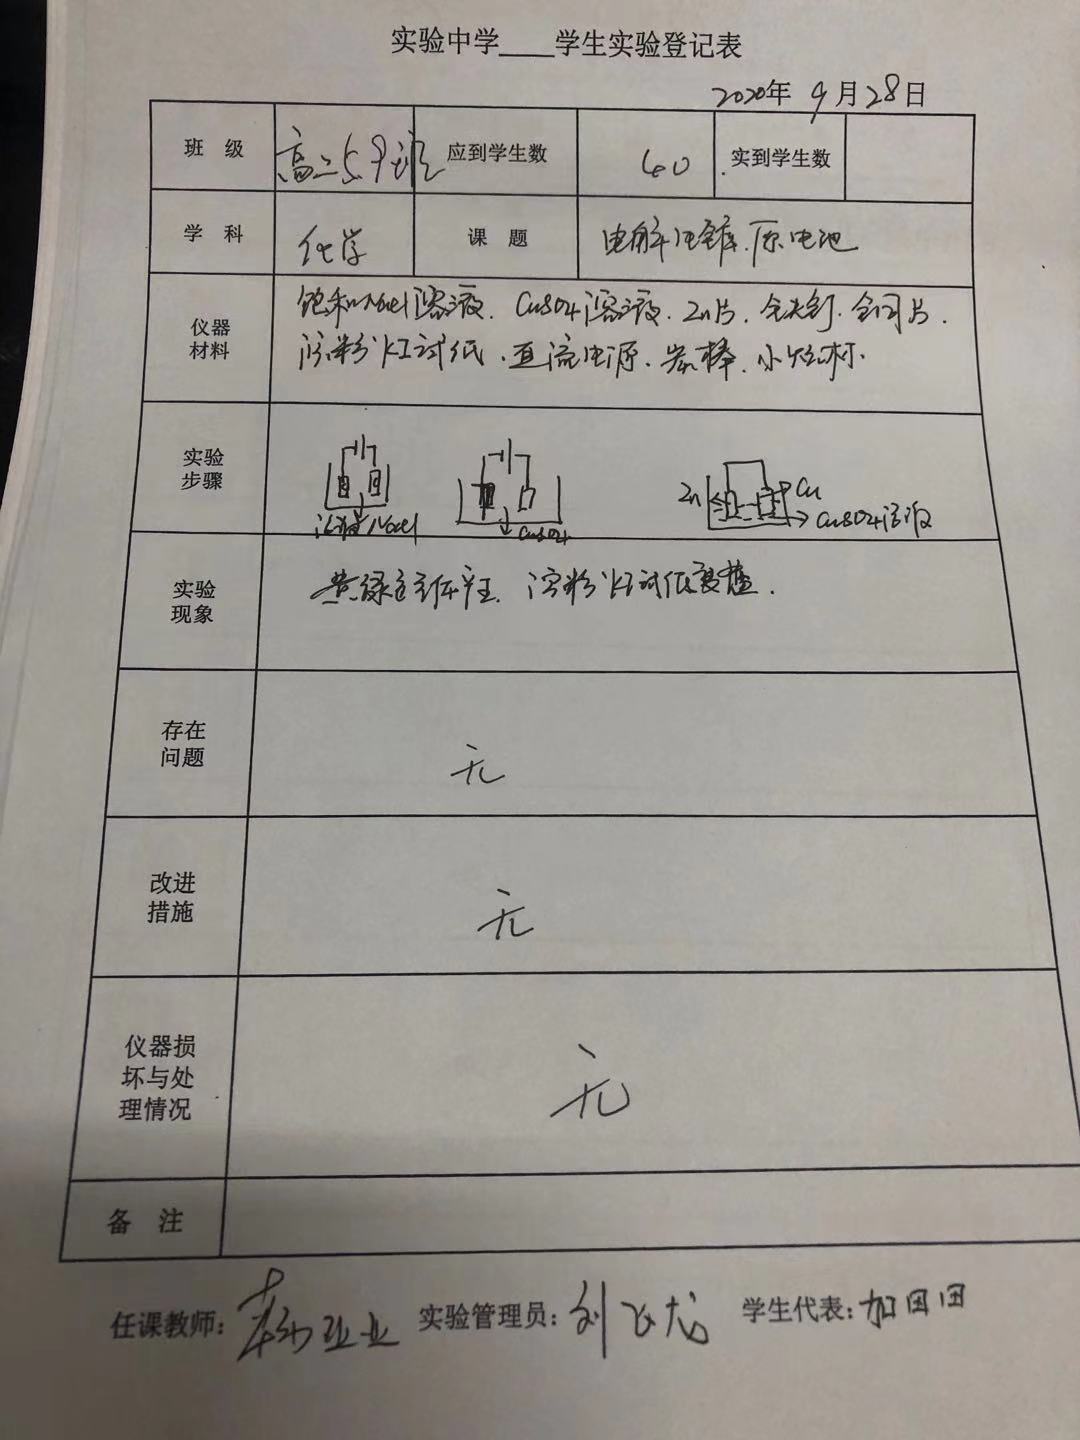 实验中学____学生实验登记表
2020年 9月28日
班 级 高二59班 应到学生数 60 实到学生数
学 科 化学 课 题 电解 电镀.原电池
仪器 饱和NaCl溶液. CuSO4溶液. Zn片. 铁钉. 铜片.
材料 淀粉KI试纸.直流电源.炭棒.小烧杯.
实验
步骤
Zn Cu
NaCl CuSO4 CuSO4溶液
实验 黄绿色气体产生. 淀粉KI试纸变蓝.
现象
存在
问题 无
改进
措施 无
仪器损
坏与处 无
理情况
备 注
任课教师: 实验管理员:刘飞龙 学生代表:加田田